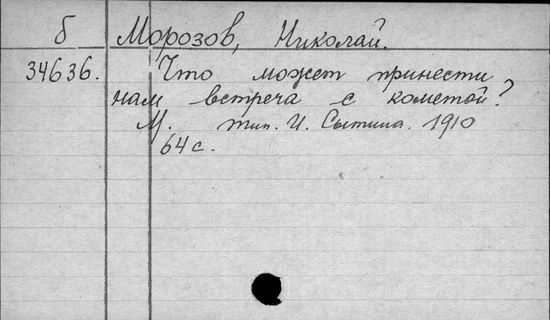 б Морозов, Николай.
34636. Что может принести
нам встреча с кометой?
М. тип. И. Сытина. 1910
64 с.